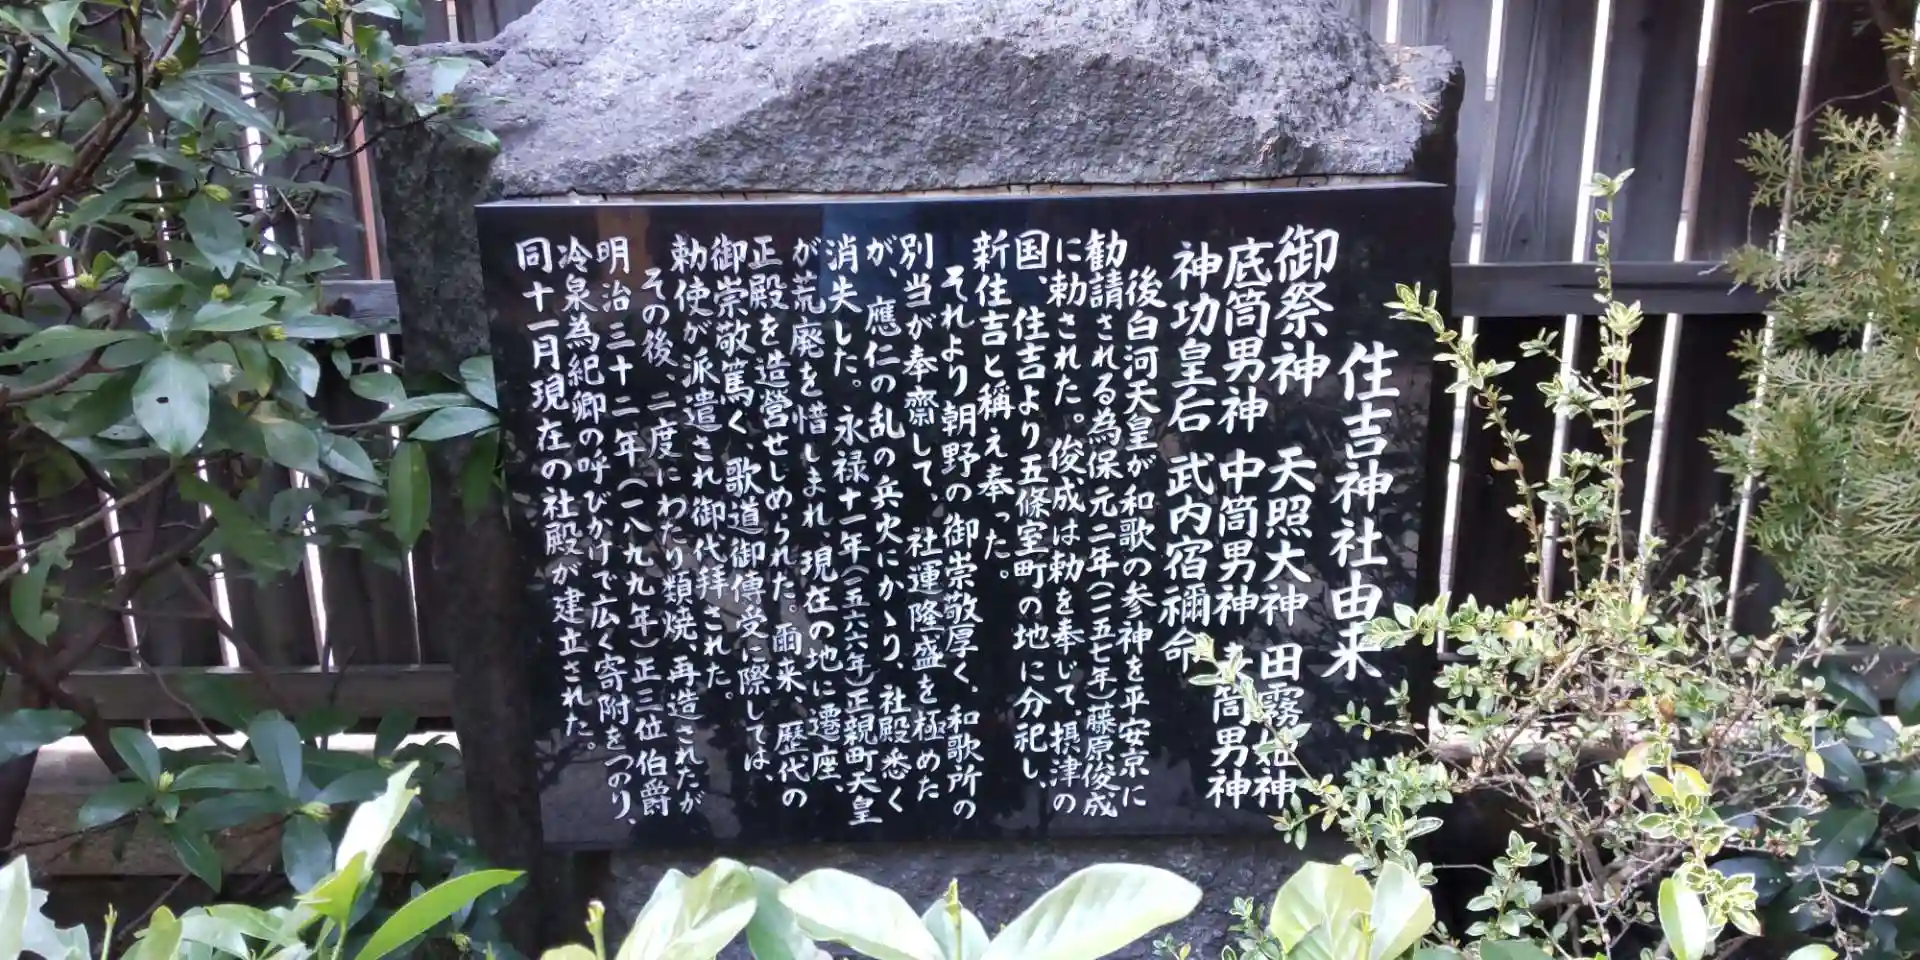 住吉神社由来
御祭神　天照大神　田霧姫神
底筒男神　中筒男神　表筒男神
神功皇后　武内宿禰命
後白河天皇が和歌の参神を平安京に
勧請される為保元二年（一一五七年）藤原俊成
に勅された。俊成は勅を奉じて、摂津の
国、住吉より五條室町の地に分祀し、
新住吉と稱え奉った。
それより朝野の御崇敬厚く、和歌所の
別当が奉齋して、社運隆盛を極めた
が、應仁の乱の兵火にかゝり、社殿悉く
消失した。永禄十一年（一五六六年）正親町天皇
が荒廃を惜しまれ、現在の地に遷座、
正殿を造営せしめられた。爾来、歴代の
御崇敬篤く、歌道御傳受に際しては、
勅使が派遣され御代拝された。
その後、二度にわたり類焼、再造されたが
明治三十二年（一八九九年）正三位伯爵
冷泉為紀卿の呼びかけで広く寄附をつのり、
同十一月現在の社殿が建立された。